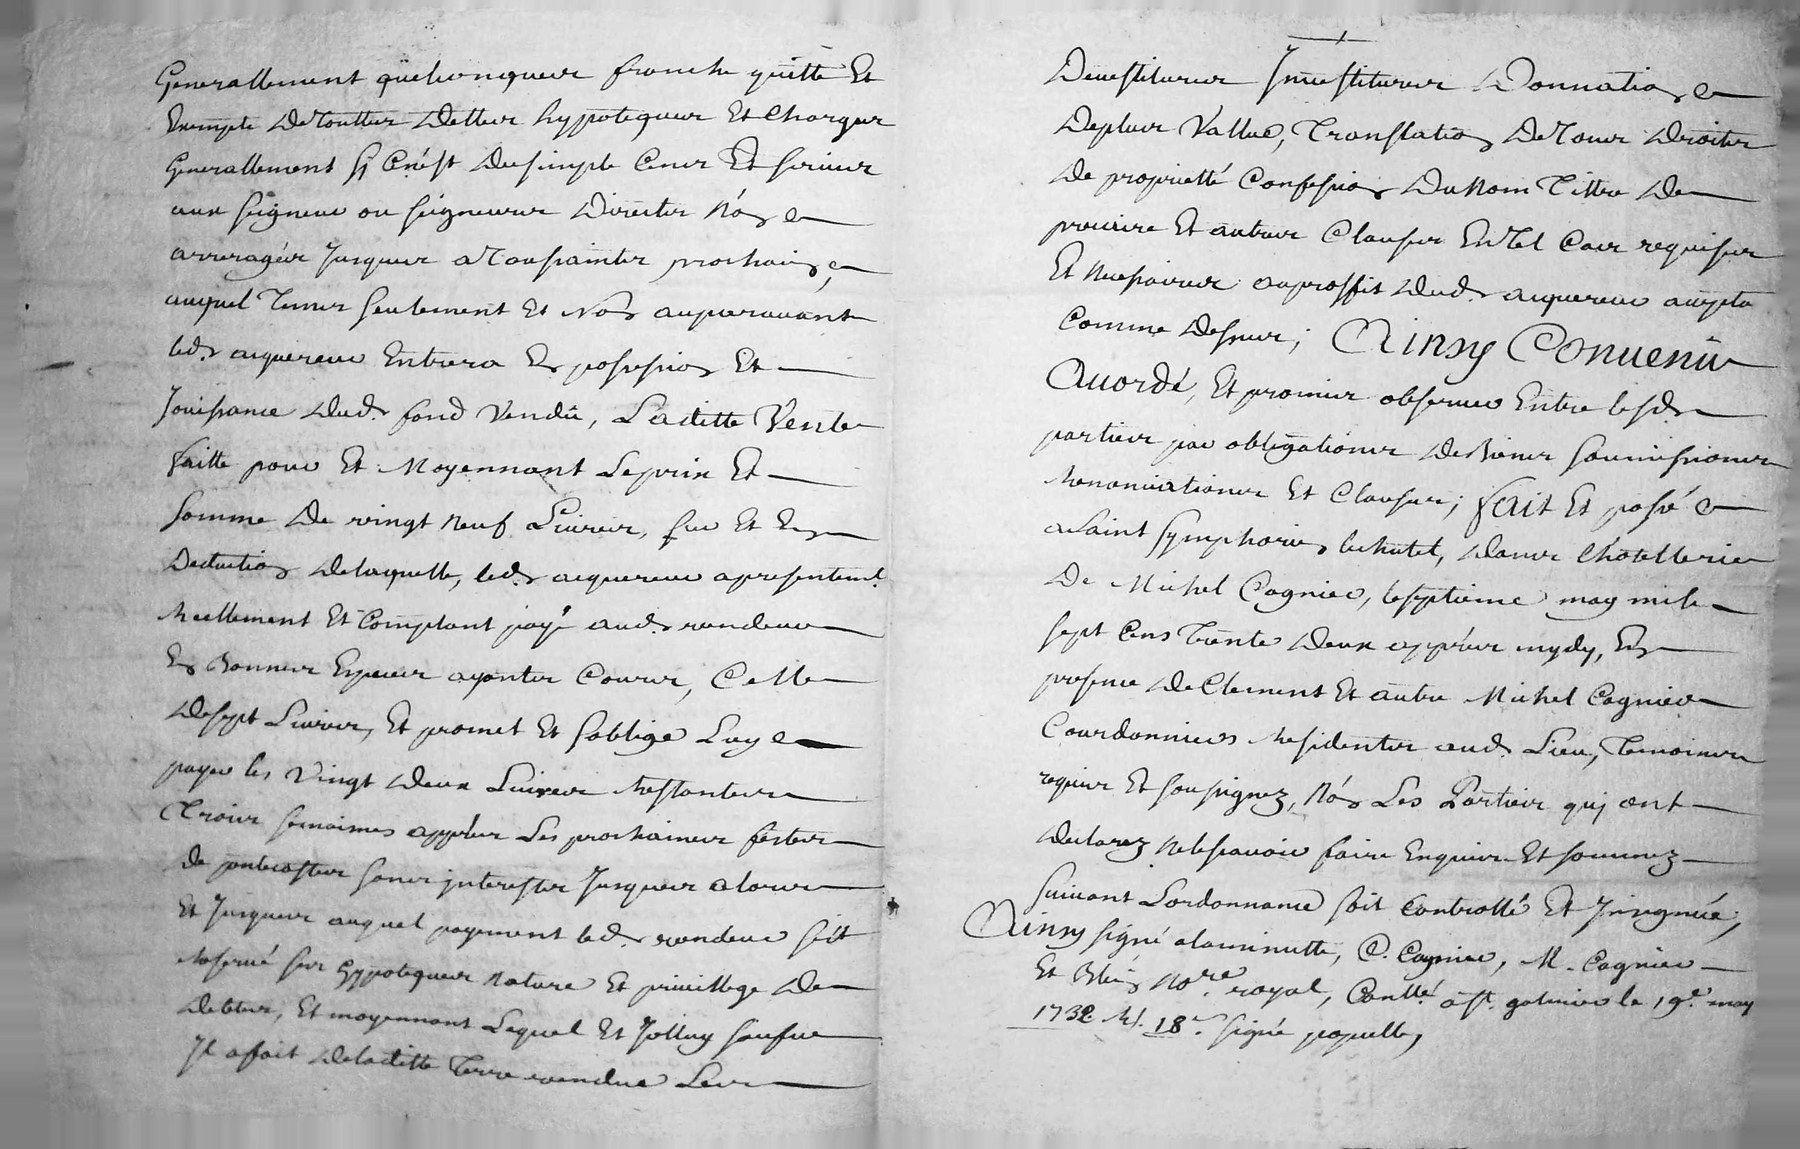 Generallement quelconques franche quitte Et
Exempte De Touttes Dettes hyppoteques Et charges
Generallement Sy Cen'est Du simple Cens Et servis
aux seigneur ou seigneurs Directes Nón
arrerages Jusques a Toussaintes prochain,
auquel Tems seulement Et Non auparavant
led. acquereur Entrera En possession Et
Jouissance dud. fond Vendû, Laditte Vente
faitte pour Et Moyennant Le prix Et
somme De vingt Neuf Livres, sur Et En
Deduction De laquelle, led. acquereur apresentemt.
Reellement Et Comptant payé aud. vendeur
En Bonnes Especes ayantes Cours, Celle
De sept Livres, Et promet Et S'oblige Luy
payer les Vingt Deux Livres Restantes
Trois semaines apprés Les prochaines festes
de pentecostes sans interestes Jusques alors
Et Jusques auquel payement led. vendeur s'est
Reservé ses hyppoteques Nature Et privillege De
Debtes, Et moyennant Lequel Et Jolluy sausue
Il a fait De laditte Terre vendue Les
Devestitures Investitures Donnation
De plus Vallue, Translation De Tous Droites
De proprietté Confession Du Nom Tittre De
precaire Et autres Clauses En Tel Cas requises
Et Necessaires au proffit dud. acquereur accepta
Comme Dessus; Ainsy Convenû
Accordé, Et promis observer Entre lesd.
parties par obligations De Biens soumissions
Renonciations Et Clauses; fait Et passé
a Saint Symphorien le chatel, Dans L'hotellerie
De Michel Cagnier, le septieme may mile
sept Cens Trente Deux apprés mydy, En
presence De Clement Et autre Michel Cagnier
Courdonniers Residentes aud. Lieu, Temoines
requis Et soussignez, Nón Les Parties quj ont
Declarez Ne le scavoir faire Enquis Et sommez
suivant Lordonnance soit Controllé Et Insignüé,
Ainsy signé a la minutte, C. Cagnier, M. Cagnier
Et Blein Nore. royal, Contllé a st. galmier le 19e. may
1732 R. 18s. signé paquelle,